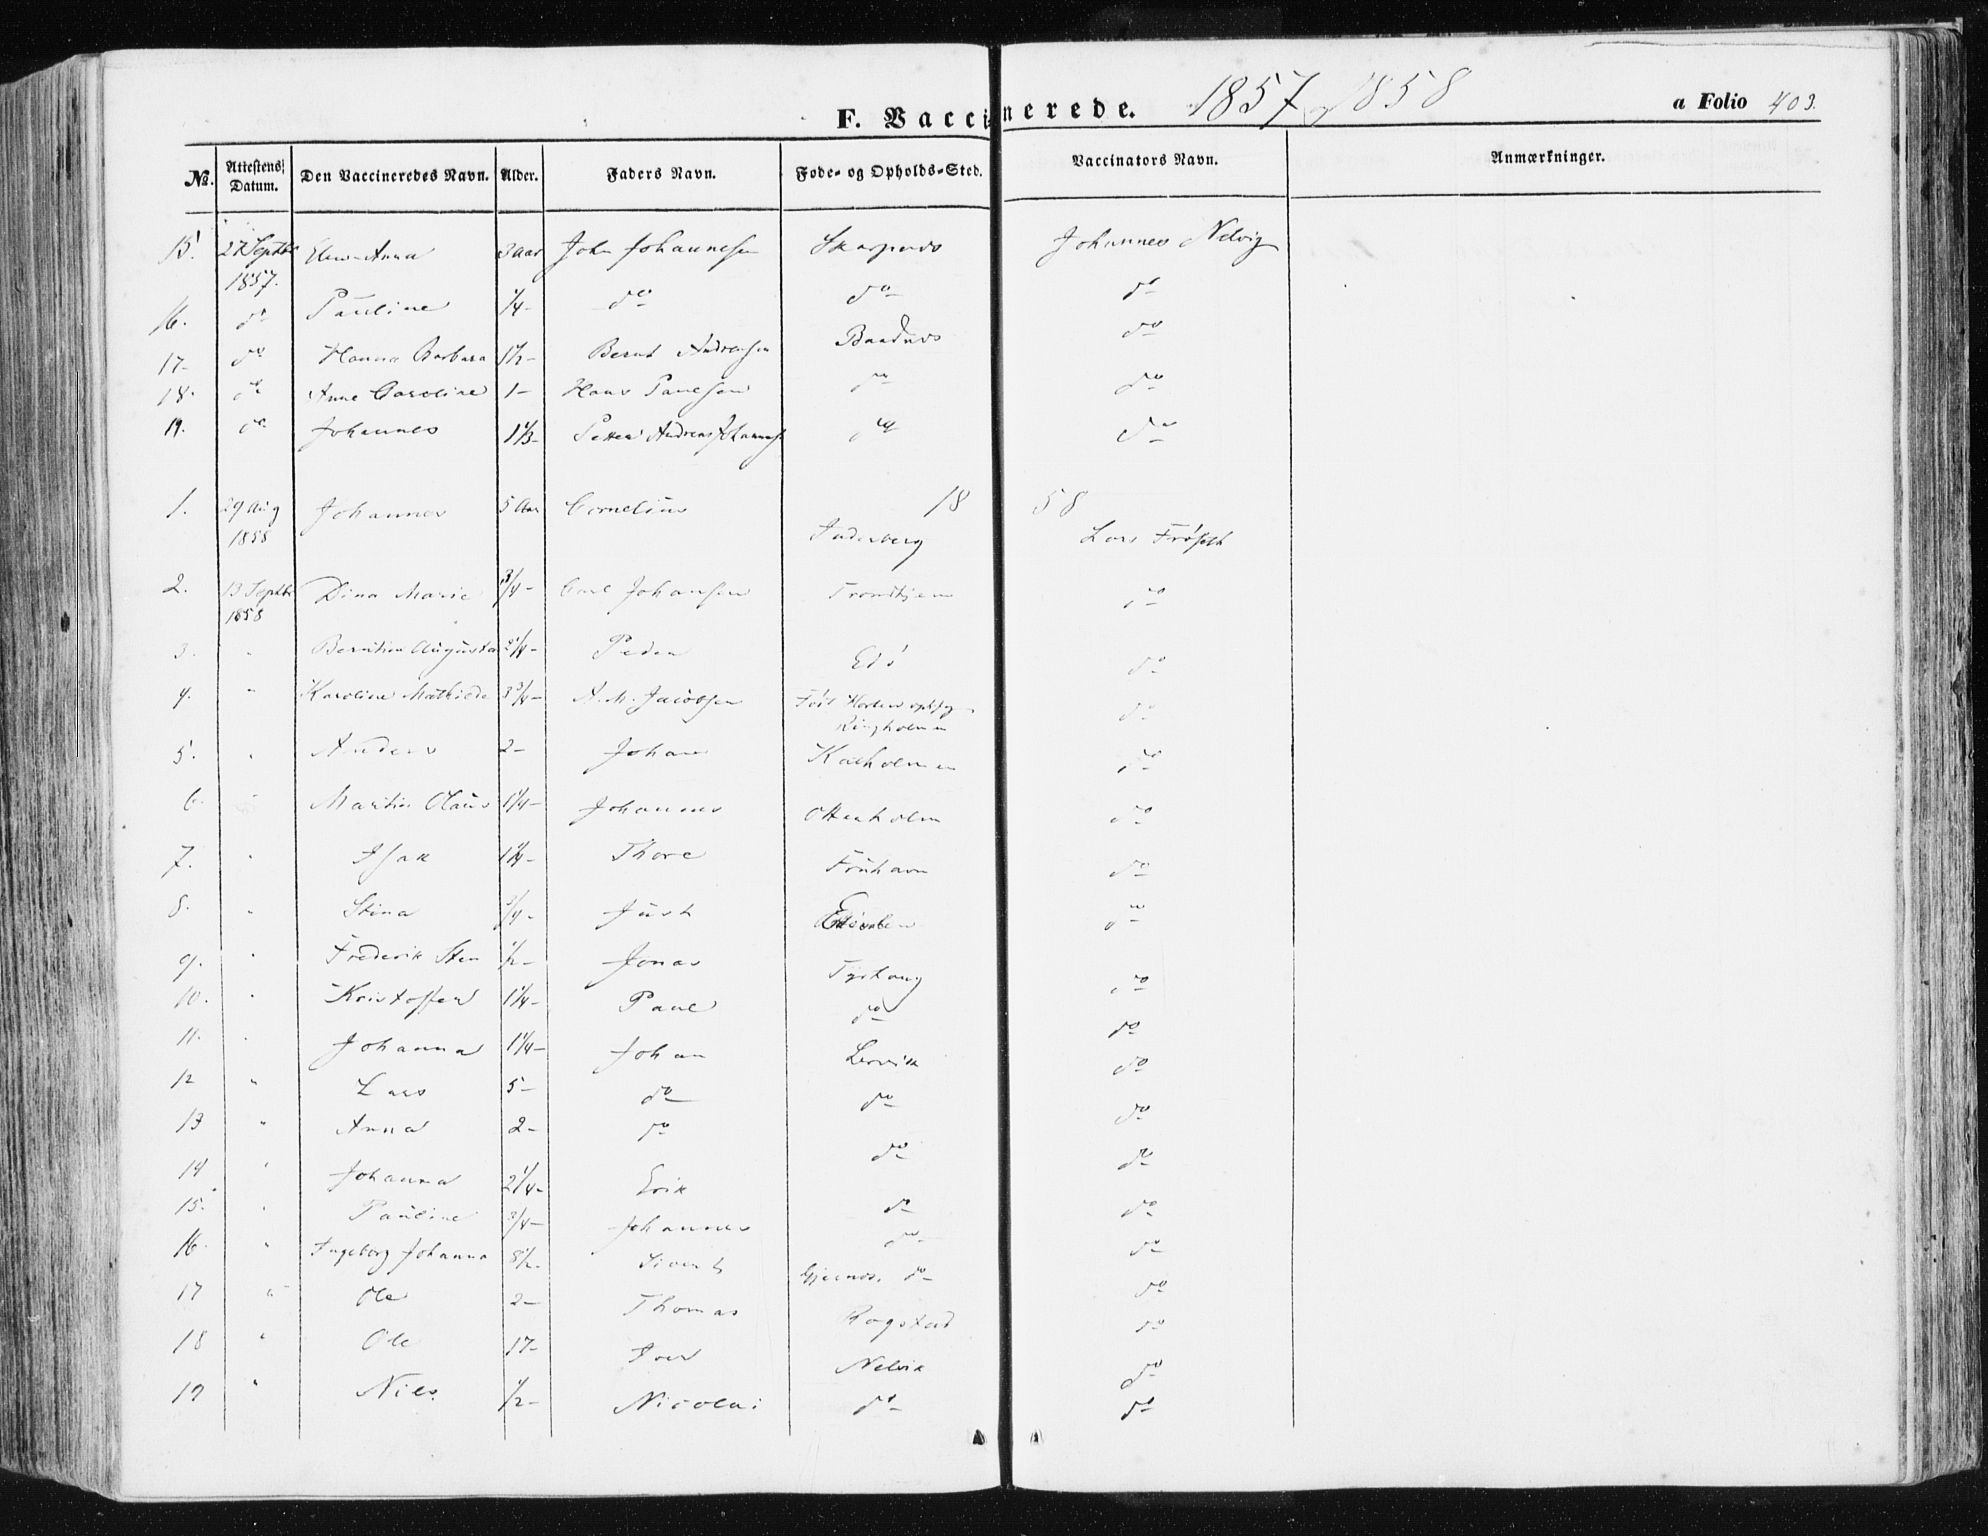 F. Vaccinerede. 1857 og 1858
a Folio 403.
No. Attestens Datum. Den Vaccineredes Navn. Alder. Faders Navn. Føde- og Opholds-Sted. Vaccinators Navn. Anmærkninger.
15. 27 Septbr 1857. Elen Anna 3 Aar John Johannesen Skarpnes Johannes Nelvig
16. do Pauline 1/4 - do do do
17. do Hanna Barbara 1 1/2 - Bernt Andreasen Baadnes do
18. do Anne Caroline 1 - Hans Paulsen do do
19. do Johannes 1 1/3 - Petter Andreas Johannes do do
1858
1. 29 Aug 1858 Johannes 5 Aar Cornelius Inderberg Lars Frøseth
2. 13 Septbr 1858 Dina Marie 3/4 - Carl Johansen Trondhjem do
3. " Berntine Augusta 2 1/4 - Peder Edø do
4. " Karoline Mathilde 3 3/4 - A. M. Jacobsen Ringholmen do
5. " Anders 2 - Johan Kalholmen do
6. " Martin Olaus 1 1/4 - Johannes Ottenholm do
7. " Isak 1 1/4 - Thore do
8. " Stina 3/4 - Just do
9. " Frederik Sten 1/2 - Jonas Tyrhaug do
10. " Kristoffer 1 1/4 - Paul do do
11. " Johanna 1 1/4 - Johan Lervik do
12 " Lars 5 - do do do
13 " Anna 2 - do do do
14 " Johanna 2 1/4 - Erik do do
15. " Pauline 3/4 - Johannes do do
16. " Ingeborg Johanna 8 1/2 - Sivert Gjernes. do do
17 " Ole 2 - Thomas Rogstad do
18 " Ole 17 - Iver Nelvik do
19 " Nils 1/2 - Nicolai do do